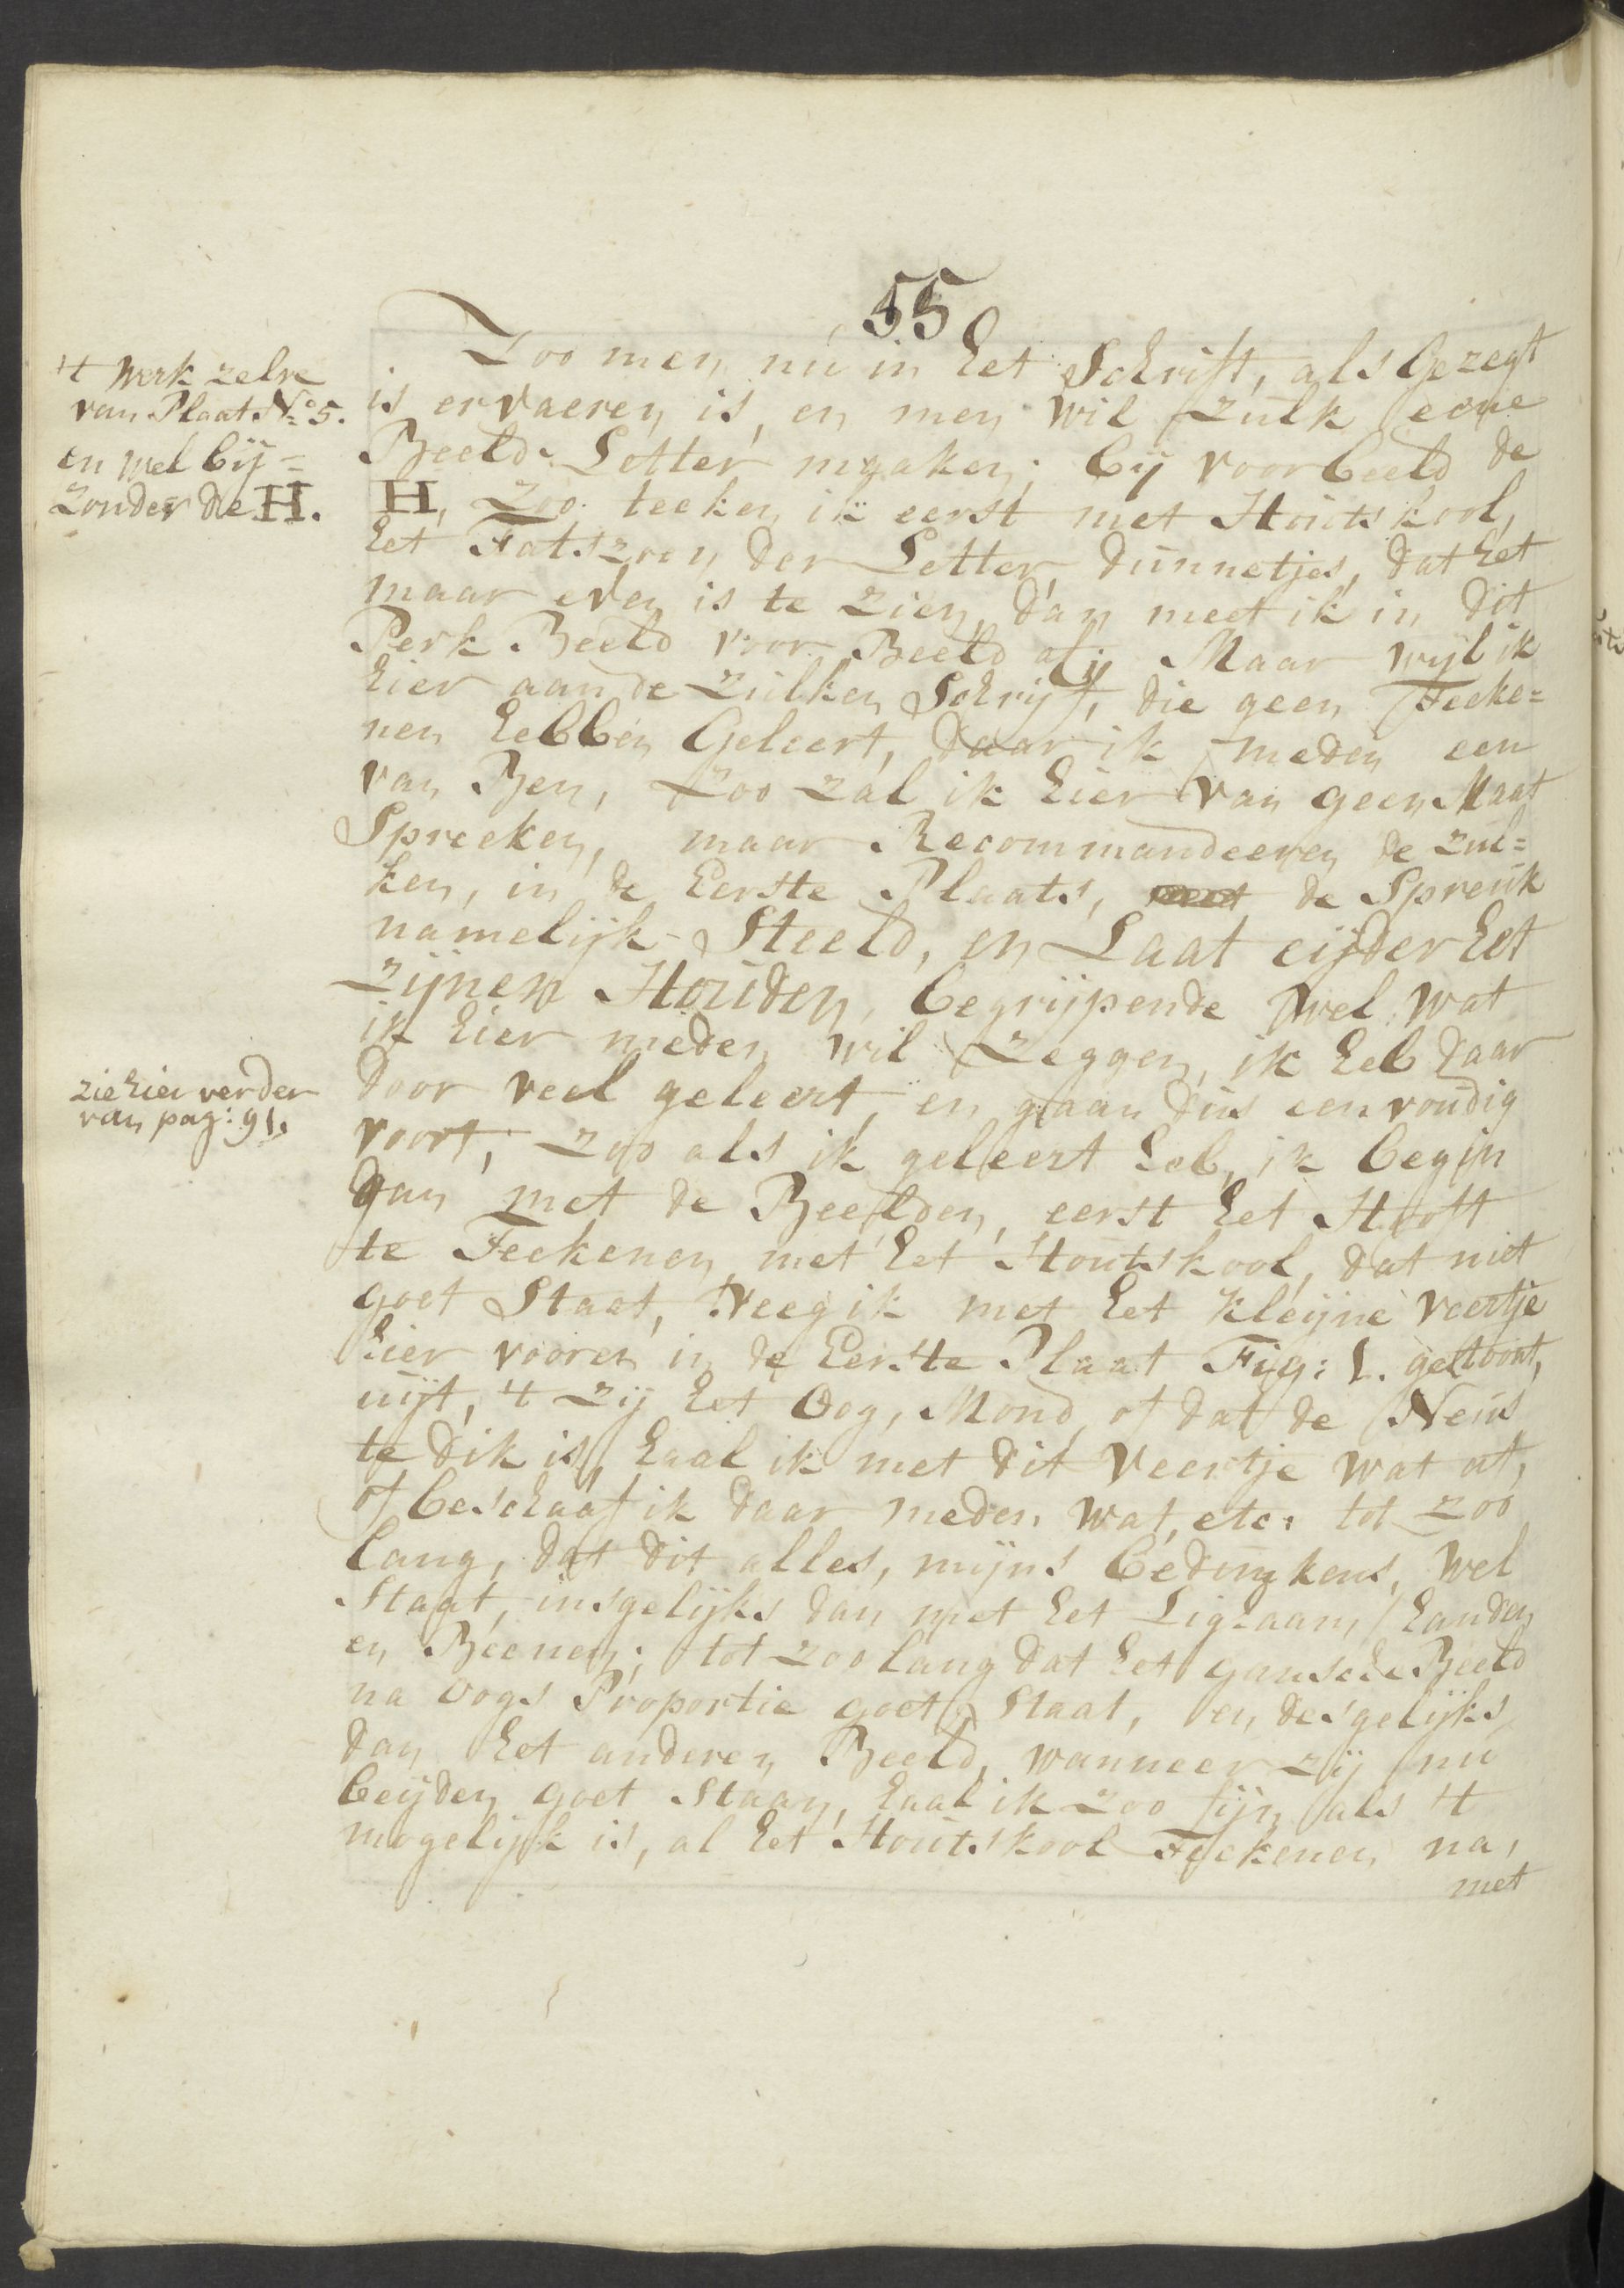 55
't werk zelve
van Plaat No. 5.
en wel bij=
zonder de H.
Zoo men nu in het Schrift, als Gezegt
is ervaeren is, en men wil zulk eene
Beeld-Letter maaken; bij voorbeeld de
H, Zoo teeken ik eerst met Houtskool,
het Fatszoen der Letter, dunnetjes, dat het
maar even is te zien, dan meet ik in dit
Perk Beeld voor Beeld af; Maar wijl ik
hier aan de zulken Schrijf, die geen Teeke=
nen hebben Geleert, daar ik meden een
van Ben, Zoo zal ik hier van geen Maat
Spreeken, maar Recommandeeren de zul=
ken, in de Eerste Plaats, de Spreuk
namelijk Steeld, en Laat eijder het
zijnen Houden, begrijpende wel wat
ik hier meden wil Zeggen, ik heb daar
door veel geleert, en gaan dus eenvoudig
zie hier verder
van pag: 91.
voort, zoo als ik geleert heb, ik begin
dan met de Beelden, eerst het Hooft
te Teekenen, met het Houtskool, dat niet
goet Staat, Veeg ik met het kleijne veertje
hier vooren in de Eerste Plaat Fig: 1. getoont,
uijt, 't zij het Oog, Mond, of dat de Neus
te dik is, haal ik met dit Veertje wat af,
of beschaaf ik daar meden wat, etc: tot zoo
lang, dat dit alles, mijns bedunkens, wel
Staat, insgelijks dan met het Ligzaam, handen
en Beenen; tot zoo lang dat het gansche Beeld
na oogs Proportie goet Staat, en desgelijks
dan het anderen Beeld, wanneer zij nu
beijden goet Staan, haal ik zoo fijn als 't
mogelijk is, al het Houtskool Teekenen na,
met